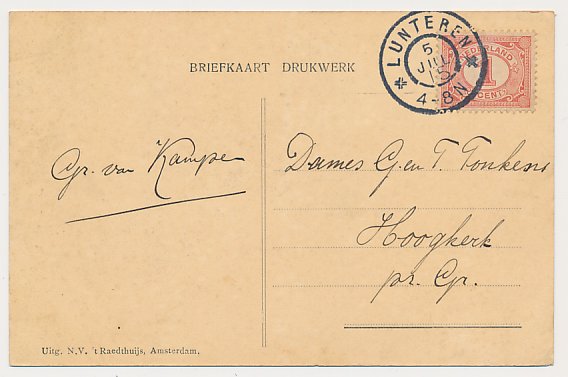 LUNTEREN
5
JUL
15
4-8N
NEDERLAND
1
CENT
BRIEFKAART DRUKWERK
Gr. van Kampen
Dames G. en T. Tonkens
Hoogkerk
pr. Gr.
Uitg. N.V. 't Raedthuijs, Amsterdam.